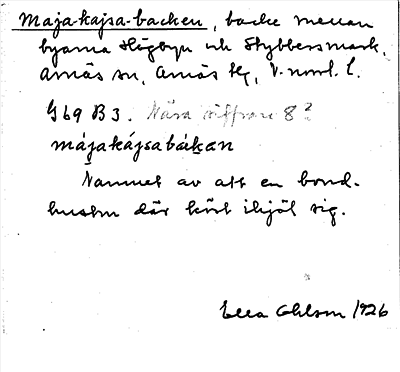 Maja-kajsa-backen, backe mellan
byarna Högbyn och Stybbersmark,
Arnäs sn, Arnäs tg, V. norrl. l.
G 69 B 3. Nära siffran 8?
májakájsabákan
Namnet av att en bond-
hustru där kört ihjäl sig.
Ella Ohlson 1926